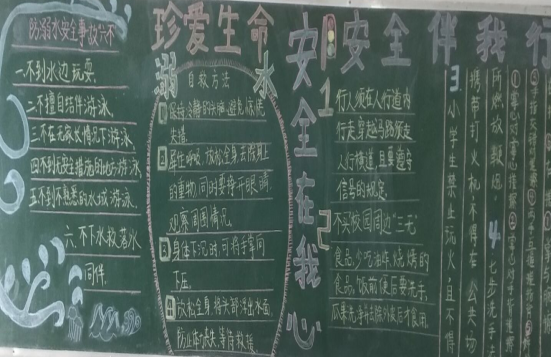 防溺水安全事故六不
一.不到水边玩耍.
二.不擅自结伴游泳.
三.不在无家长情况下游泳.
四.不到无安全措施的地方游泳.
五.不到不熟悉的水域游泳.
六.不下水救落水
同伴.
珍爱生命
溺水
自救方法
保持冷静的头脑,避免惊慌
失措.
屏住呼吸,放松全身,去除身上
的重物,同时要睁开眼睛,
观察周围情况.
身体下沉时,可将手掌向
下压.
放松全身,将头部浮出水面,
等待救援.
安全在我心
安全伴我行
1
行人须在人行道内
行走,穿越马路须走
人行横道,且要遵守
信号的规定.
2
不买校园周边“三无”
食品,少吃油炸、烧烤的
食品,饭前便后要洗手,
瓜果洗净
3.小学生禁止玩火,且不得
携带打火机,不得在公共场
所燃放鞭炮.
4.七步洗手